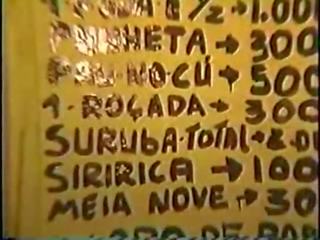 1 FODA E 1/2 → 1.00
PUNHETA → 300
PAU-NO-CÚ → 500
1-ROÇADA → 300
SURUBA-TOTAL → 2.0
SIRIRICA → 100
MEIA NOVE → 30